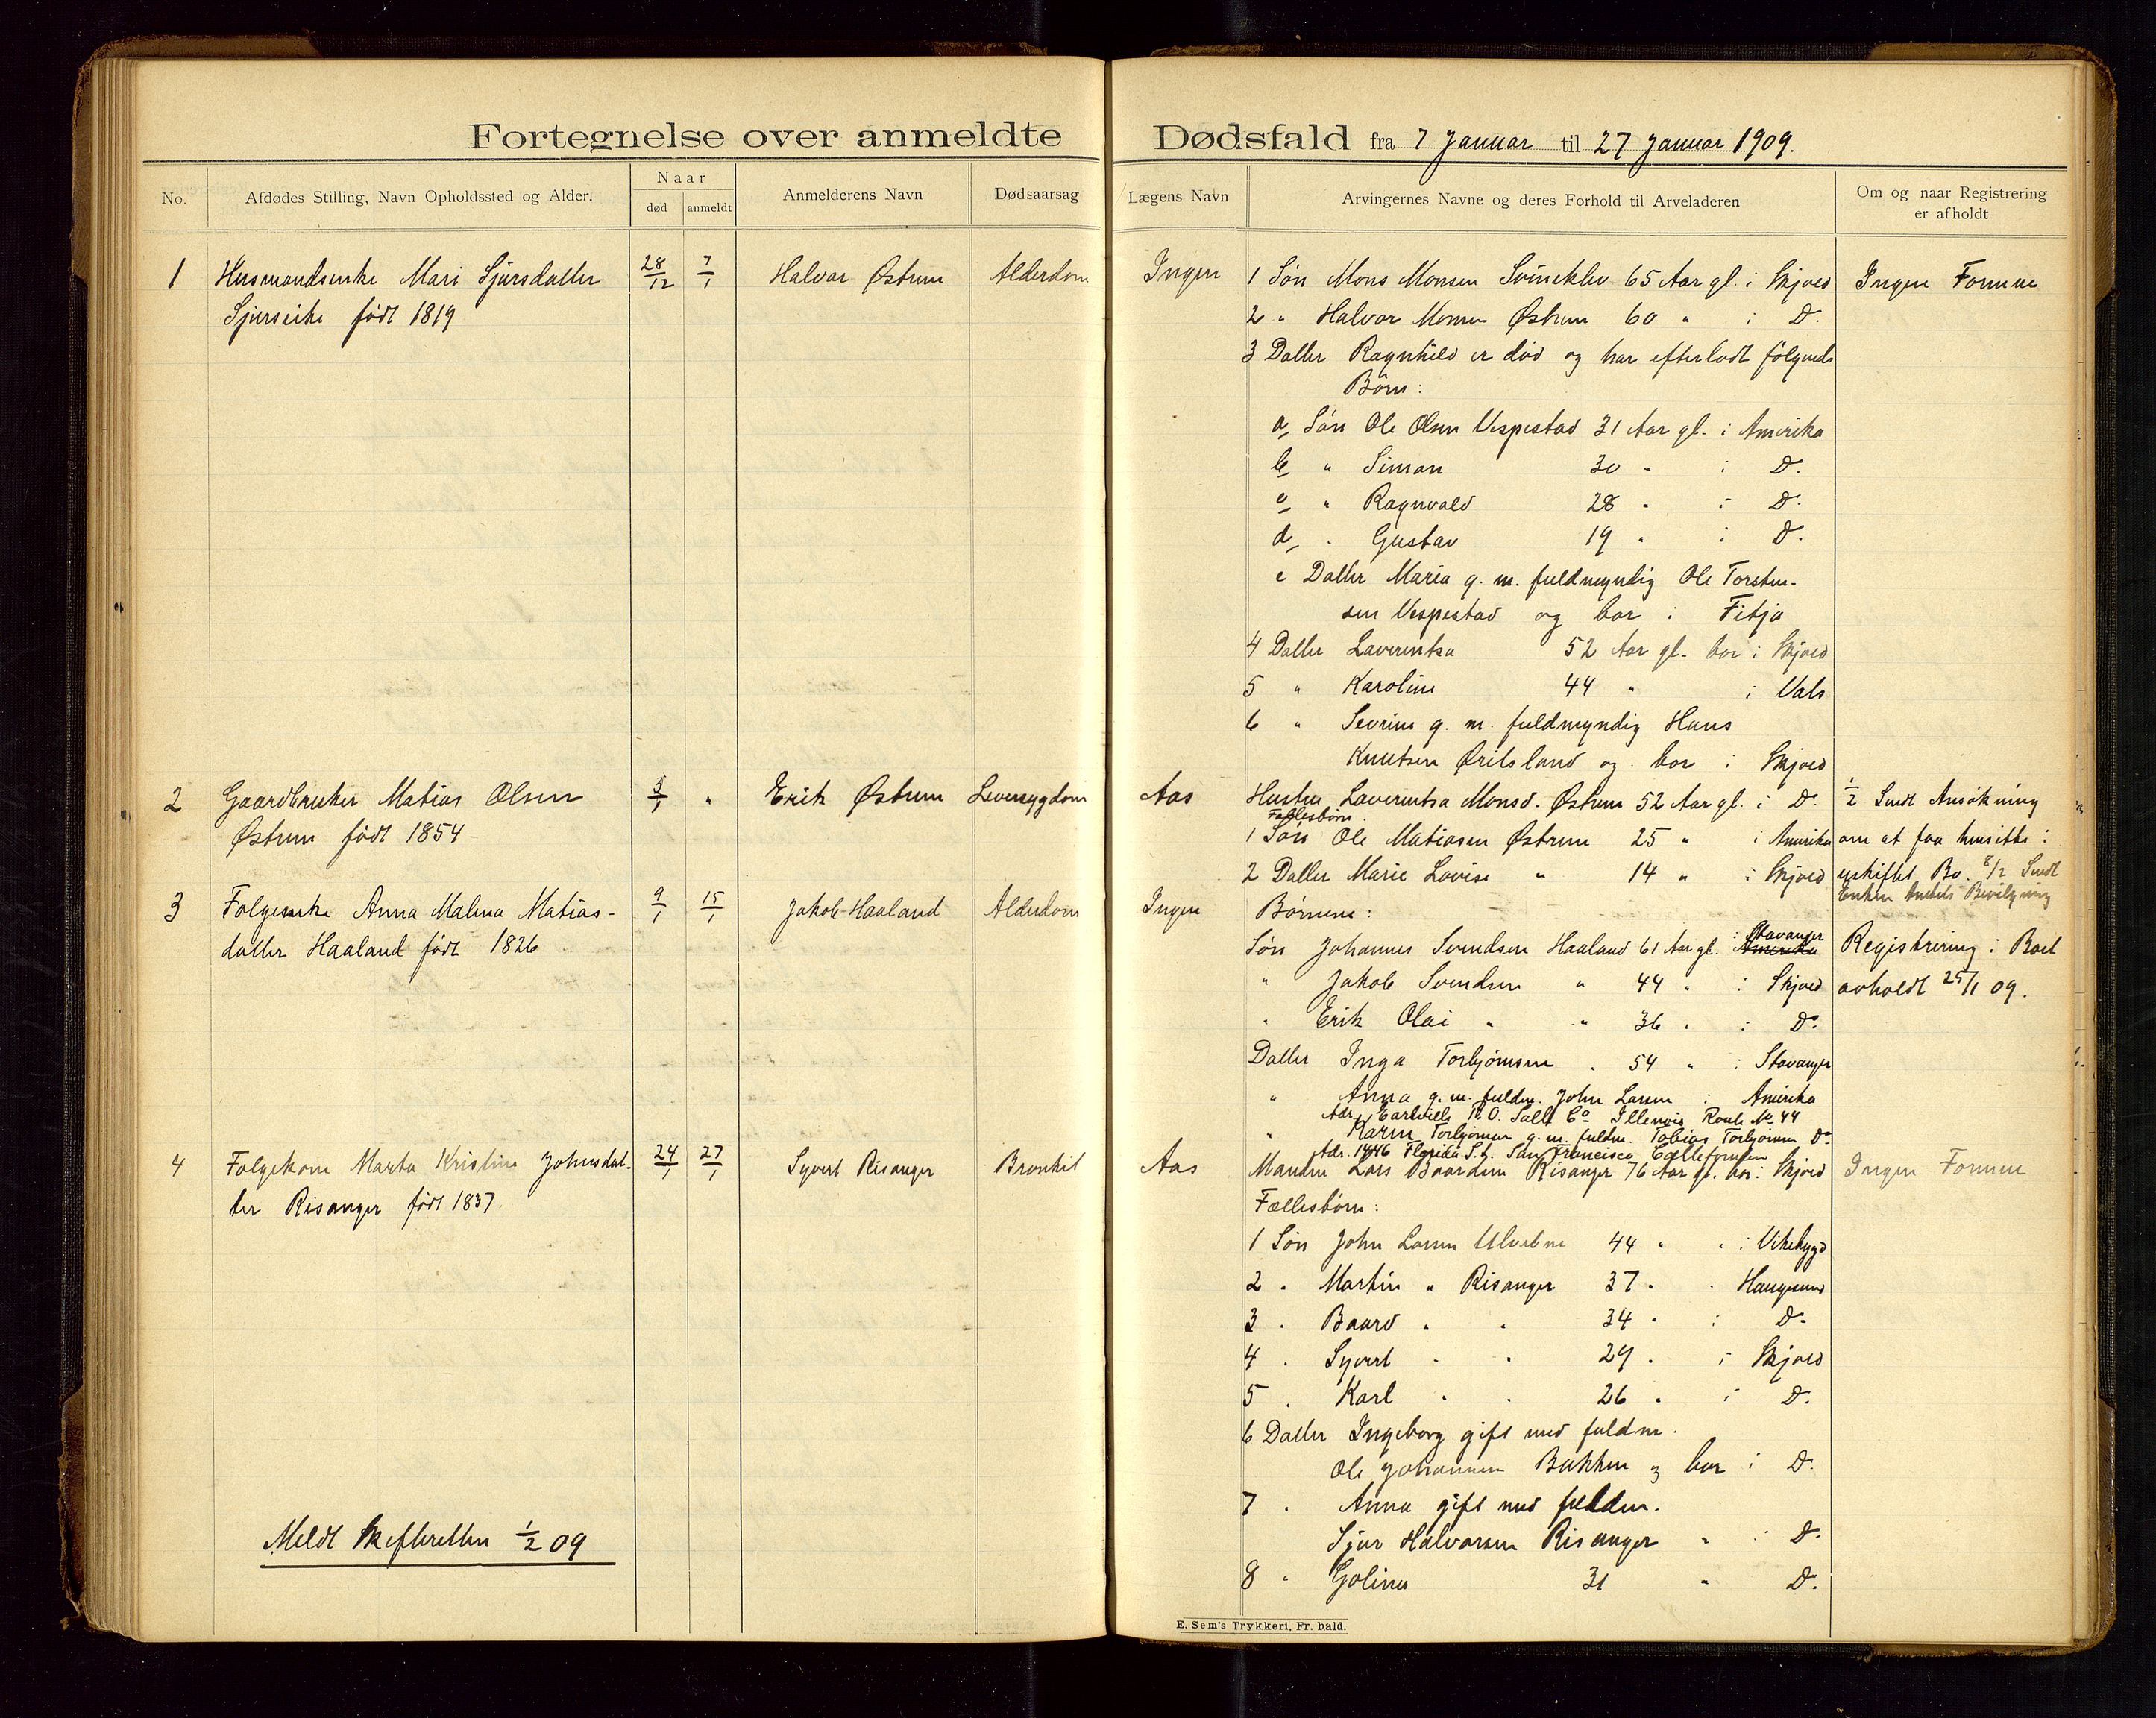 Fortegnelse over anmeldte Dødsfald fra 7 Januar til 27 Januar 1909.
No.
Afdødes Stilling, Navn Opholdssted og Alder.
Naar
død
anmeldt
Anmelderens Navn
Dødsaarsag
Lægens Navn
Arvingernes Navne og deres Forhold til Arveladeren
Om og naar Registrering
er afholdt
1 Husmandsenke Mari Sjursdatter 28/12 7/1 Halvar Østrem Alderdom Ingen
Sjurseike født 1819
1 Søn Mons Monsen Svineklev 65 Aar gl. i Skjold Ingen Formue
2 " Halvor Monsen Østrem 60 " i Do.
3 Datter Ragnhild er død og har efterladt følgende
Børn:
a, Søn Ole Olsen Vespestad 31 Aar gl. i Amerika
b, " Simon 30 " i Do.
c, " Ragnvald 28 " i Do.
d, " Gustav 19 " i Do.
e Datter Maria g. m. fuldmyndig Ole Torsten-
sen Vespestad og bor i Fitja
4 Datter Laverentsa 52 Aar gl. bor i Skjold
5 " Karoline 44 " i Vats
6 " Sevrine g. m. fuldmyndig Hans
Knutsen Øritsland og bor i Skjold
2 Gaardbruker Matias Olsen 3/1 " Erik Østrem Leversygdom Aas
Østrem født 1854
Hustru Laverentsa Monsd. Østrem 52 Aar gl. i Do.
Fællesbørn.
1 Søn Ole Matiasen Østrem 25 " i Amerika
2 Datter Marie Lovise " 14 " i Skjold
1/2 Sendt Ansøkning
om at faa hensitte i
uskiftet Bo. 8/2 Sendt
Enken Bevilgning
3 Følgeenke Anna Malena Matias- 9/1 15/1 Jakob Haaland Alderdom Ingen
datter Haaland født 1826
Børnene:
Søn Johannes Svendsen Haaland 61 Aar gl. i Stavanger Amerika
" Jakob Svendsen " 44 " i Skjold
" Erik Olai " " 36 " i Do.
Datter Inga Torbjørnsen " 54 " i Stavanger
" Anna g. m. fuldm. John Larsen i Amerika
Adr. Earlville P.O. Salle Co Illenois Route No 44
" Karen Torbjørnsen g. m. fuldm. Tobias Torbjørnsen Do
Adr. 1446 Florida St. San Francisco Calleformien
Registrering i Boet
avholdt 25/1 09.
4 Følgekone Marta Kristine Johnsdat- 24/1 27/1 Syvert Risanger Bronkit Aas
ter Risanger født 1837
Manden Lars Baardsen Risanger 76 Aar gl. bor i Skjold Ingen Formue
Fællesbørn:
1 Søn John Larsen Ulvebne 44 " " i Vikebygd
2 " Martin " Risanger 37 " " Haugesund
3 " Baard " " 34 " i Do.
4 " Syvert " " 29 " i Skjold
5 " Karl " " 26 " i Do.
6 Datter Ingeborg gift med fuldm.
Ole Johannesen Bakken og bor i Do.
7 " Anna gift med fuldm.
Sjur Halvorsen Risanger " i Do.
8 " Goline 31 " Do.
Meldt Skifteretten 1/2 09
E. Sem's Trykkeri, Fr. hald.